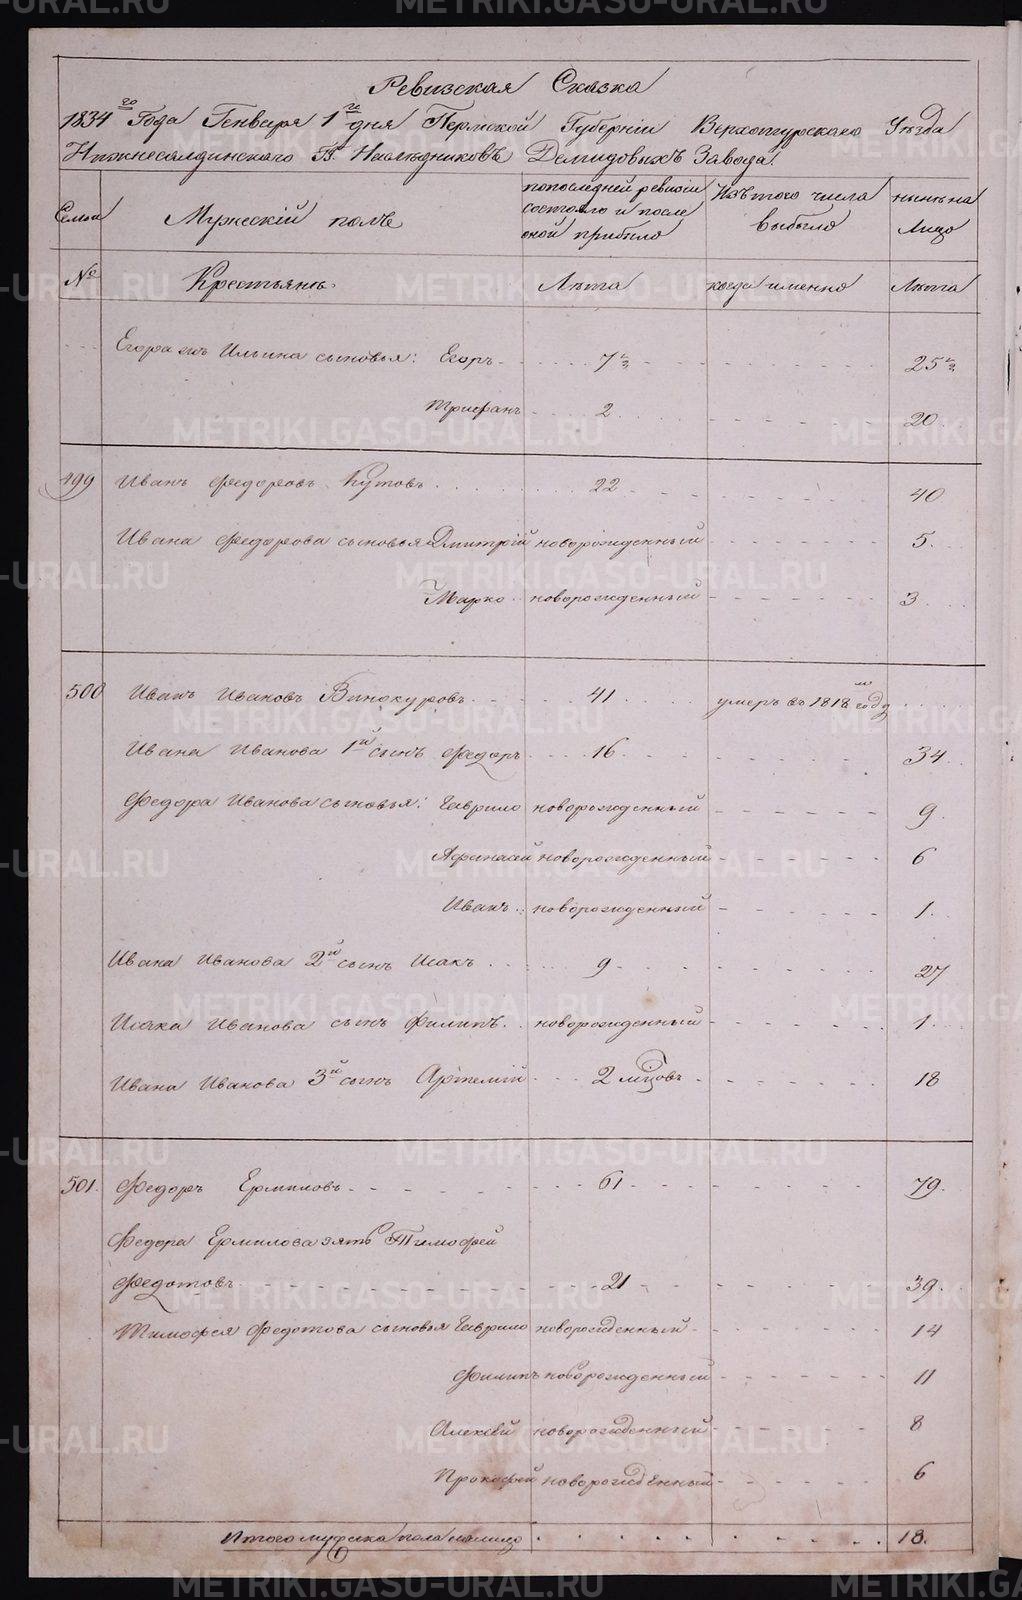 Ревизская Сказка
1834го Года Генваря 1го дня Пермской Губерніи Верхотурскаго Уѣзда
Нижнесалдинскаго Гг. Наслѣдниковъ Демидовыхъ Завода.
Семьи
Мужескій полъ
попоследней ревизіи состояло и после оной прибыло
Изъ того числа выбыло
нынѣ на Лицо
№ Крестьянъ. Лѣта когда именно Лѣта
Егора Ильина сыновья: Егоръ 7 25
Трифанъ 2 20
499 Иванъ Федоровъ Кутовъ 22 40
Ивана Федорова сыновья Дмитрій новорожденный 5.
Марко новорожденный 3
500 Иванъ Ивановъ Винокуровъ 41 умеръ въ 1818м году
Ивана Иванова 1й сынъ Федоръ 16 34
Федора Иванова сыновья: Гаврило новорожденный 9
Афанасей новорожденный 6
Иванъ новорожденный 1.
Ивана Иванова 2й сынъ Исакъ 9 27
Исака Иванова сынъ Филипъ новорожденный 1
Ивана Иванова 3й сынъ Артемій 2 мѣцовъ 18
501. Федоръ Ермиловъ 61 79.
Федора Ермилова зять Тимофей
Федотовъ 21 39.
Тимофея Федотова сыновья Гаврило новорожденный 14
Филипъ новорожденный 11
Алексѣй новорожденный 8
Прокофей новорожденный 6
Итого мужеска пола налицо 18.
METRIKI.GASO-URAL.RU